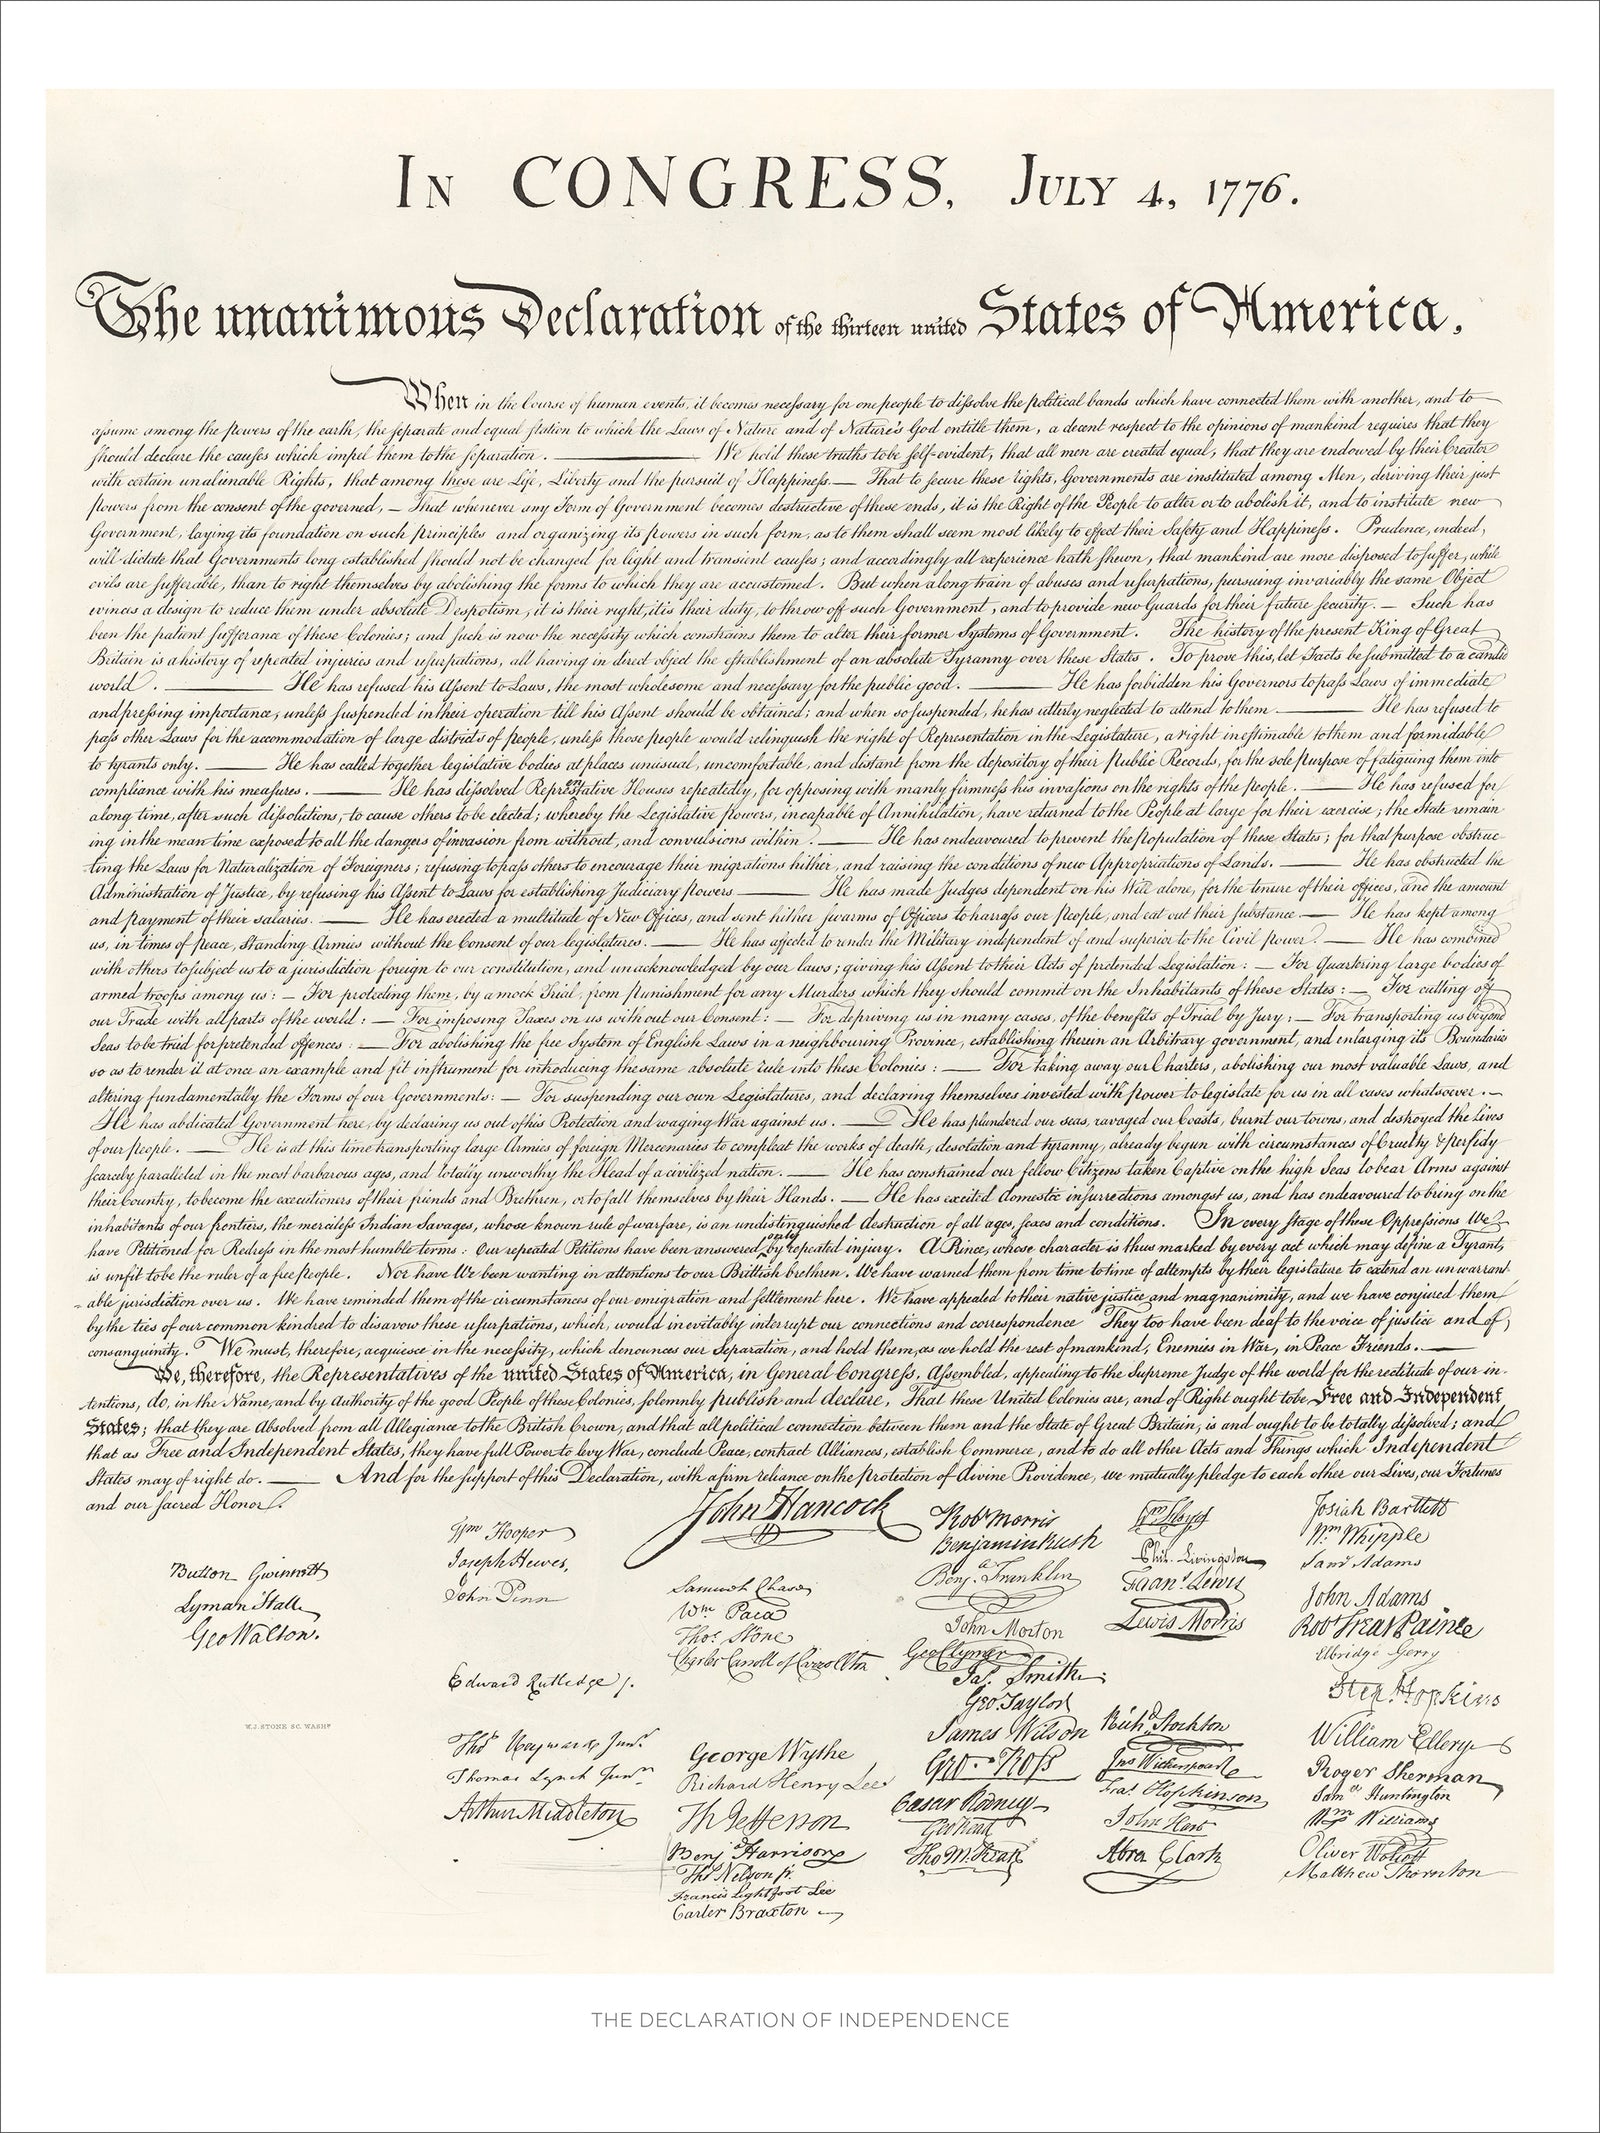 In CONGRESS, July 4, 1776.
The unanimous Declaration of the thirteen united States of America,
When in the Course of human events, it becomes necessary for one people to dissolve the political bands which have connected them with another, and to
assume among the powers of the earth, the separate and equal station to which the Laws of Nature and of Nature's God entitle them, a decent respect to the opinions of mankind requires that they
should declare the causes which impel them to the separation. ——— We hold these truths to be self-evident, that all men are created equal, that they are endowed by their Creator
with certain unalienable Rights, that among these are Life, Liberty and the pursuit of Happiness.— That to secure these rights, Governments are instituted among Men, deriving their just
powers from the consent of the governed, — That whenever any Form of Government becomes destructive of these ends, it is the Right of the People to alter or to abolish it, and to institute new
Government, laying its foundation on such principles and organizing its powers in such form, as to them shall seem most likely to effect their Safety and Happiness. Prudence, indeed,
will dictate that Governments long established should not be changed for light and transient causes; and accordingly all experience hath shewn, that mankind are more disposed to suffer, while
evils are sufferable, than to right themselves by abolishing the forms to which they are accustomed. But when a long train of abuses and usurpations, pursuing invariably the same Object
evinces a design to reduce them under absolute Despotism, it is their right, it is their duty, to throw off such Government, and to provide new Guards for their future security. — Such has
been the patient sufferance of these Colonies; and such is now the necessity which constrains them to alter their former Systems of Government. The history of the present King of Great
Britain is a history of repeated injuries and usurpations, all having in direct object the establishment of an absolute Tyranny over these States. To prove this, let Facts be submitted to a candid
world. ——— He has refused his Assent to Laws, the most wholesome and necessary for the public good. ——— He has forbidden his Governors to pass Laws of immediate
and pressing importance, unless suspended in their operation till his Assent should be obtained; and when so suspended, he has utterly neglected to attend to them. ——— He has refused to
pass other Laws for the accommodation of large districts of people, unless those people would relinquish the right of Representation in the Legislature, a right inestimable to them and formidable
to tyrants only. ——— He has called together legislative bodies at places unusual, uncomfortable, and distant from the depository of their public Records, for the sole purpose of fatiguing them into
compliance with his measures. ——— He has dissolved Representative Houses repeatedly, for opposing with manly firmness his invasions on the rights of the people. ——— He has refused for
a long time, after such dissolutions, to cause others to be elected; whereby the Legislative powers, incapable of Annihilation, have returned to the People at large for their exercise; the State remain
ing in the mean time exposed to all the dangers of invasion from without, and convulsions within. ——— He has endeavoured to prevent the population of these States; for that purpose obstruc-
ting the Laws for Naturalization of Foreigners; refusing to pass others to encourage their migrations hither, and raising the conditions of new Appropriations of Lands. ——— He has obstructed the
Administration of Justice, by refusing his Assent to Laws for establishing Judiciary powers ——— He has made Judges dependent on his Will alone, for the tenure of their offices, and the amount
and payment of their salaries. ——— He has erected a multitude of New Offices, and sent hither swarms of Officers to harrass our people, and eat out their substance. ——— He has kept among
us, in times of peace, Standing Armies without the Consent of our legislatures. ——— He has affected to render the Military independent of and superior to the Civil power. ——— He has combined
with others to subject us to a jurisdiction foreign to our constitution, and unacknowledged by our laws; giving his Assent to their Acts of pretended Legislation: — For Quartering large bodies of
armed troops among us: — For protecting them, by a mock Trial, from punishment for any Murders which they should commit on the Inhabitants of these States: — For cutting off
our Trade with all parts of the world: — For imposing Taxes on us without our Consent: — For depriving us in many cases, of the benefits of Trial by Jury: — For transporting us beyond
Seas to be tried for pretended offences: — For abolishing the free System of English Laws in a neighbouring Province, establishing therein an Arbitrary government, and enlarging its Boundaries
so as to render it at once an example and fit instrument for introducing the same absolute rule into these Colonies: — For taking away our Charters, abolishing our most valuable Laws, and
altering fundamentally the Forms of our Governments: — For suspending our own Legislatures, and declaring themselves invested with power to legislate for us in all cases whatsoever. —
He has abdicated Government here, by declaring us out of his Protection and waging War against us. — He has plundered our seas, ravaged our Coasts, burnt our towns, and destroyed the lives
of our people. — He is at this time transporting large Armies of foreign Mercenaries to compleat the works of death, desolation and tyranny, already begun with circumstances of Cruelty & perfidy
scarcely paralleled in the most barbarous ages, and totally unworthy the Head of a civilized nation. — He has constrained our fellow Citizens taken Captive on the high Seas to bear Arms against
their Country, to become the executioners of their friends and Brethren, or to fall themselves by their Hands. — He has excited domestic insurrections amongst us, and has endeavoured to bring on the
inhabitants of our frontiers, the merciless Indian Savages, whose known rule of warfare, is an undistinguished destruction of all ages, sexes and conditions. In every stage of these Oppressions We
have Petitioned for Redress in the most humble terms: Our repeated Petitions have been answered only by repeated injury. A Prince, whose character is thus marked by every act which may define a Tyrant,
is unfit to be the ruler of a free people. Nor have We been wanting in attentions to our Brittish brethren. We have warned them from time to time of attempts by their legislature to extend an unwarrant
-able jurisdiction over us. We have reminded them of the circumstances of our emigration and settlement here. We have appealed to their native justice and magnanimity, and we have conjured them
by the ties of our common kindred to disavow these usurpations, which, would inevitably interrupt our connections and correspondence They too have been deaf to the voice of justice and of
consanguinity. We must, therefore, acquiesce in the necessity, which denounces our Separation, and hold them, as we hold the rest of mankind, Enemies in War, in Peace Friends. —
We, therefore, the Representatives of the united States of America, in General Congress, Assembled, appealing to the Supreme Judge of the world for the rectitude of our in-
tentions, do, in the Name, and by Authority of the good People of these Colonies, solemnly publish and declare, That these United Colonies are, and of Right ought to be Free and Independent
States; that they are Absolved from all Allegiance to the British Crown, and that all political connection between them and the State of Great Britain, is and ought to be totally dissolved; and
that as Free and Independent States, they have full Power to levy War, conclude Peace, contract Alliances, establish Commerce, and to do all other Acts and Things which Independent
States may of right do. ——— And for the support of this Declaration, with a firm reliance on the protection of divine Providence, we mutually pledge to each other our Lives, our Fortunes
and our sacred Honor.
Button Gwinnett
Lyman Hall
Geo Walton.
Wm Hooper
Joseph Hewes,
John Penn
Edward Rutledge /.
Thos Heyward Junr.
Thomas Lynch Junr.
Arthur Middleton
John Hancock
Samuel Chase
Wm. Paca
Thos. Stone
Charles Carroll of Carrollton
George Wythe
Richard Henry Lee
Th Jefferson
Benj Harrison
Thos Nelson jr.
Francis Lightfoot Lee
Carter Braxton
Robt Morris
Benjamin Rush
Benj. Franklin
John Morton
Geo Clymer
Jas. Smith
Geo. Taylor
James Wilson
Geo. Ross
Caesar Rodney
Geo Read
Tho M:Kean
Wm Floyd
Phil. Livingston
Frans. Lewis
Lewis Morris
Richd. Stockton
Jno Witherspoon
Fras. Hopkinson
John Hart
Abra Clark
Josiah Bartlett
Wm. Whipple
Saml Adams
John Adams
Robt Treat Paine
Elbridge Gerry
Step. Hopkins
William Ellery
Roger Sherman
Saml Huntington
Wm. Williams
Oliver Wolcott
Matthew Thornton
W.J. STONE SC. WASHN
THE DECLARATION OF INDEPENDENCE